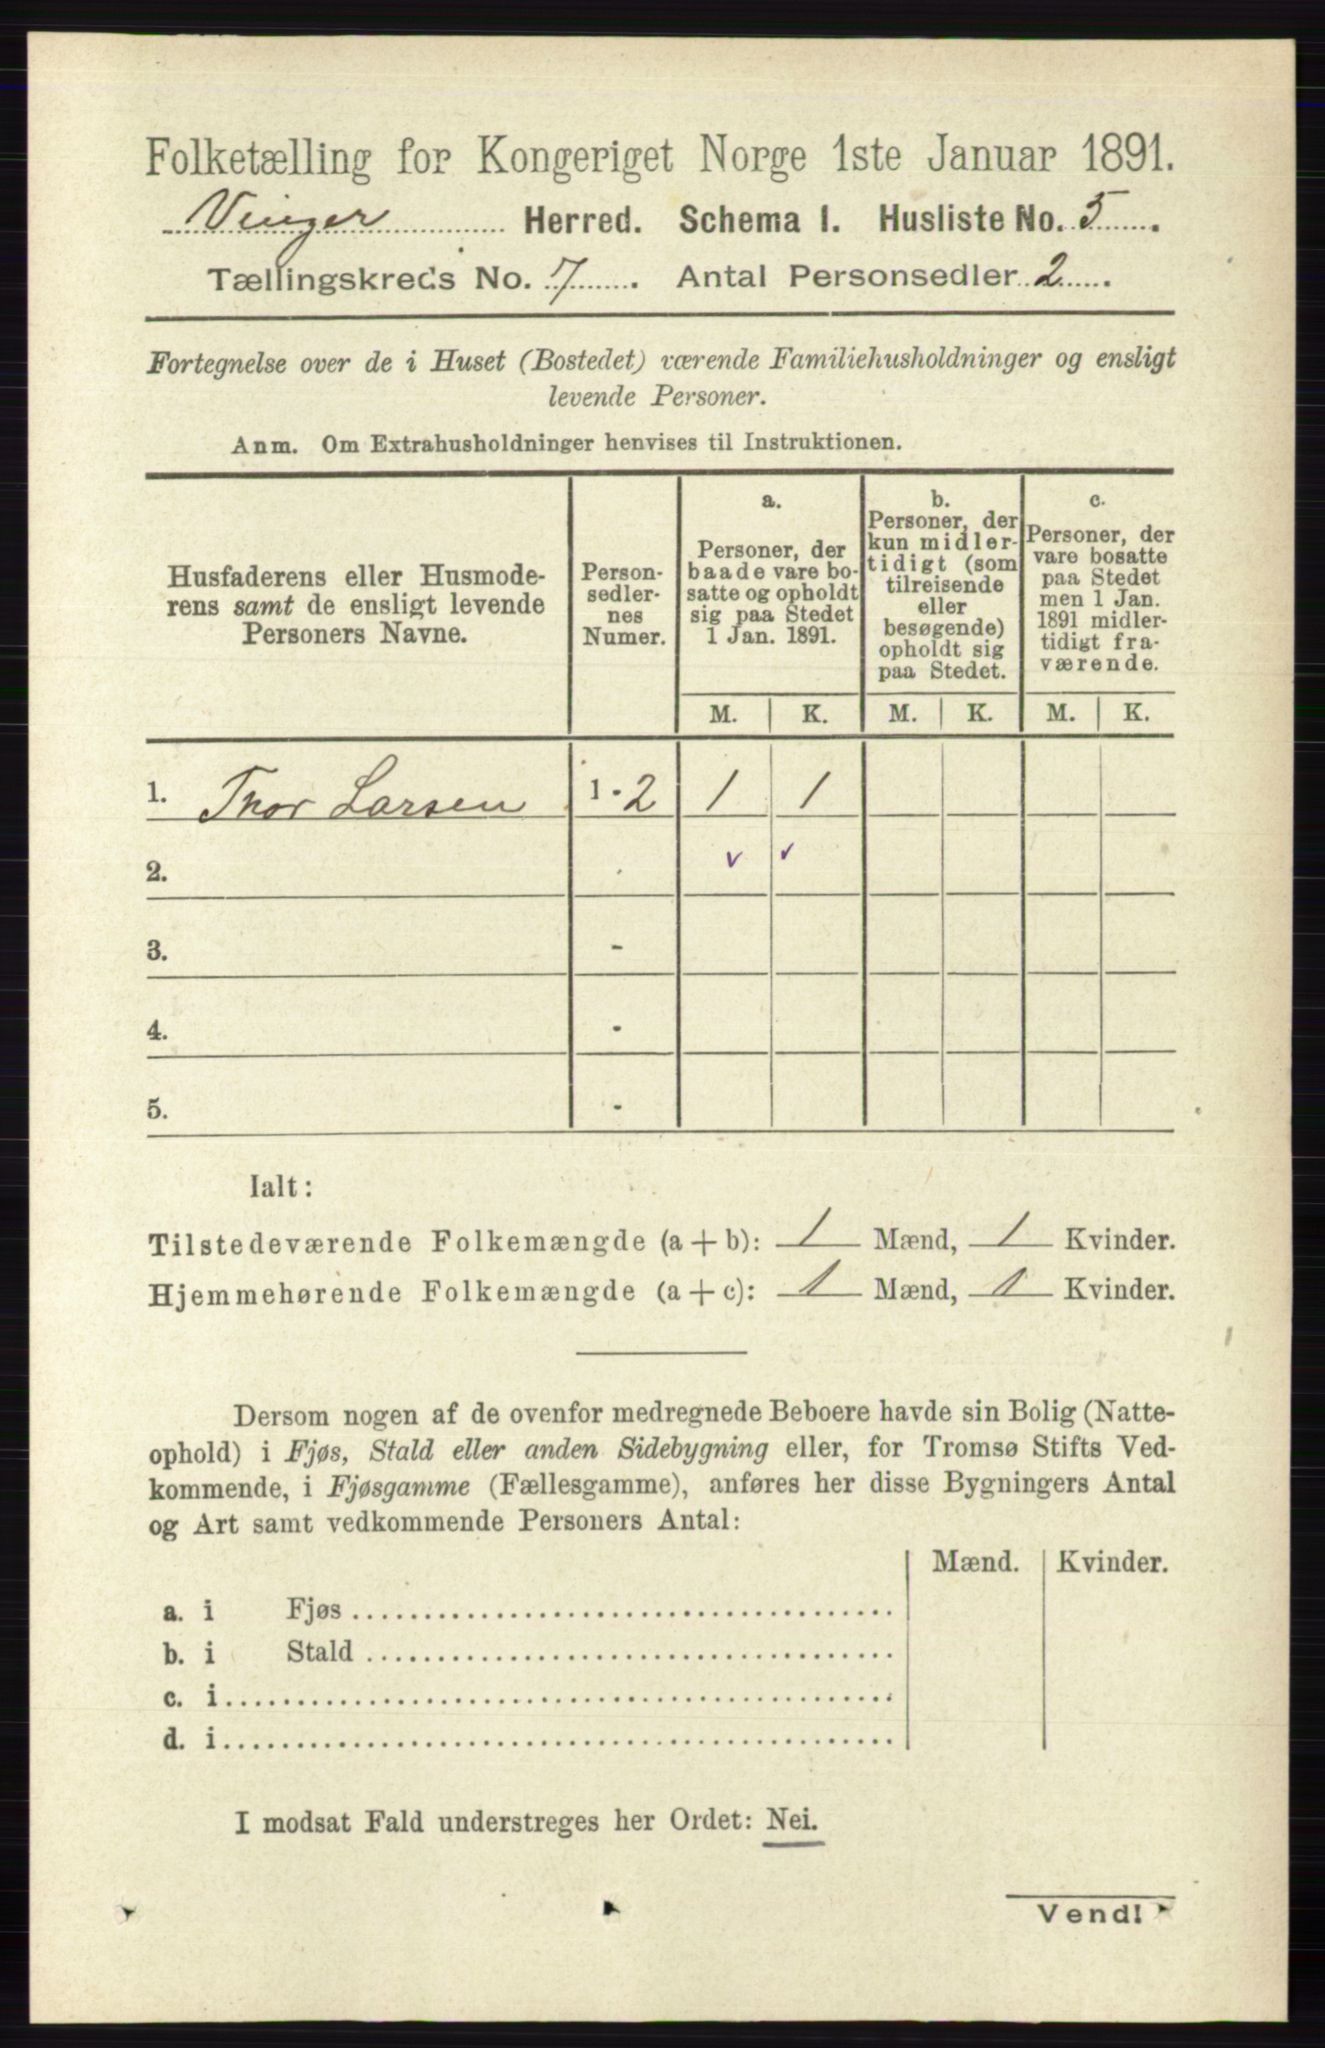 Folketælling for Kongeriget Norge 1ste Januar 1891.
Vinger Herred. Schema I. Husliste No. 5.
Tællingskreds No. 7. Antal Personsedler 2.
Fortegnelse over de i Huset (Bostedet) værende Familiehusholdninger og ensligt
levende Personer.
Anm. Om Extrahusholdninger henvises til Instruktionen.
Husfaderens eller Husmode-
rens samt de ensligt levende
Personers Navne.
Person-
sedler-
nes
Numer.
a.
Personer, der
baade vare bo-
satte og opholdt
sig paa Stedet
1 Jan. 1891.
b.
Personer, der
kun midler-
tidigt (som
tilreisende
eller
besøgende)
opholdt sig
paa Stedet.
c.
Personer, der
vare bosatte
paa Stedet
men 1 Jan.
1891 midler-
tidigt fra-
værende.
M. K. M. K. M. K.
1. Thor Larsen 1 - 2 1 1
2.
3. -
4. -
5. -
Ialt:
Tilstedeværende Folkemængde (a + b): 1 Mænd, 1 Kvinder.
Hjemmehørende Folkemængde (a + c): 1 Mænd, 1 Kvinder.
Dersom nogen af de ovenfor medregnede Beboere havde sin Bolig (Natte-
ophold) i Fjøs, Stald eller anden Sidebygning eller, for Tromsø Stifts Ved-
kommende, i Fjøsgamme (Fællesgamme), anføres her disse Bygningers Antal
og Art samt vedkommende Personers Antal:
Mænd. Kvinder.
a. i Fjøs
b. i Stald
c. i
d. i
I modsat Fald understreges her Ordet: Nei.
Vend!